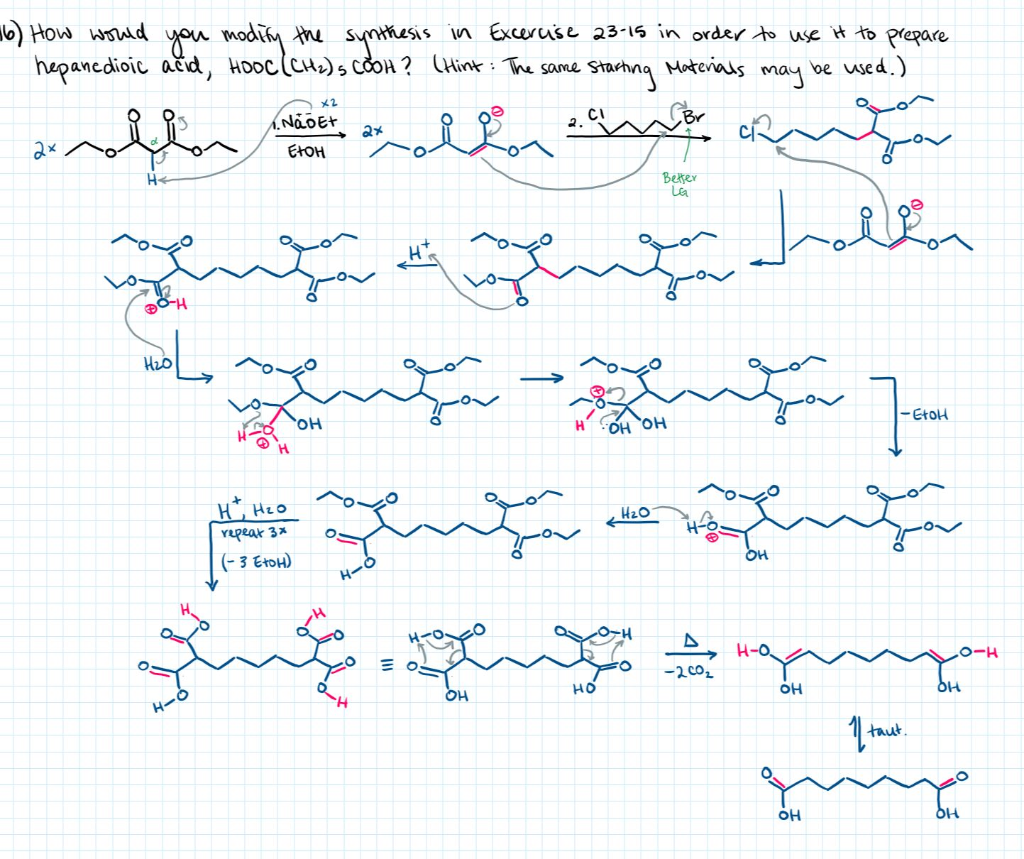 16) How would you modify the synthesis in Excercise 23-15 in order to use it to prepare
hepanedioic acid, HOOC(CH2)5COOH? (Hint: The same starting Materials may be used.)
2x
O O
O O
α
H
x2
1. NaOEt
EtOH
2x
O O ⊖
O O
2. Cl Br
Better
LG
Cl
O O
O
O
O O ⊖
O O
O O O O
O O
O O
⊕ O-H
H+
O O O O
O O
O O
H2O
O O O O
O O
OH O
H-O
⊕ H
O O O O
⊕
O O
H OH OH O
-EtOH
H+, H2O
repeat 3x
(-3 EtOH)
O O O O
O O
O O
H-O
H2O
O O O O
H-O O
⊕ O
OH
H H
O O O O
O O
O O
H-O H
≡
H-O O O O-H
O O
OH HO
Δ
-2CO2
H-O O-H
OH OH
taut.
O O
OH OH